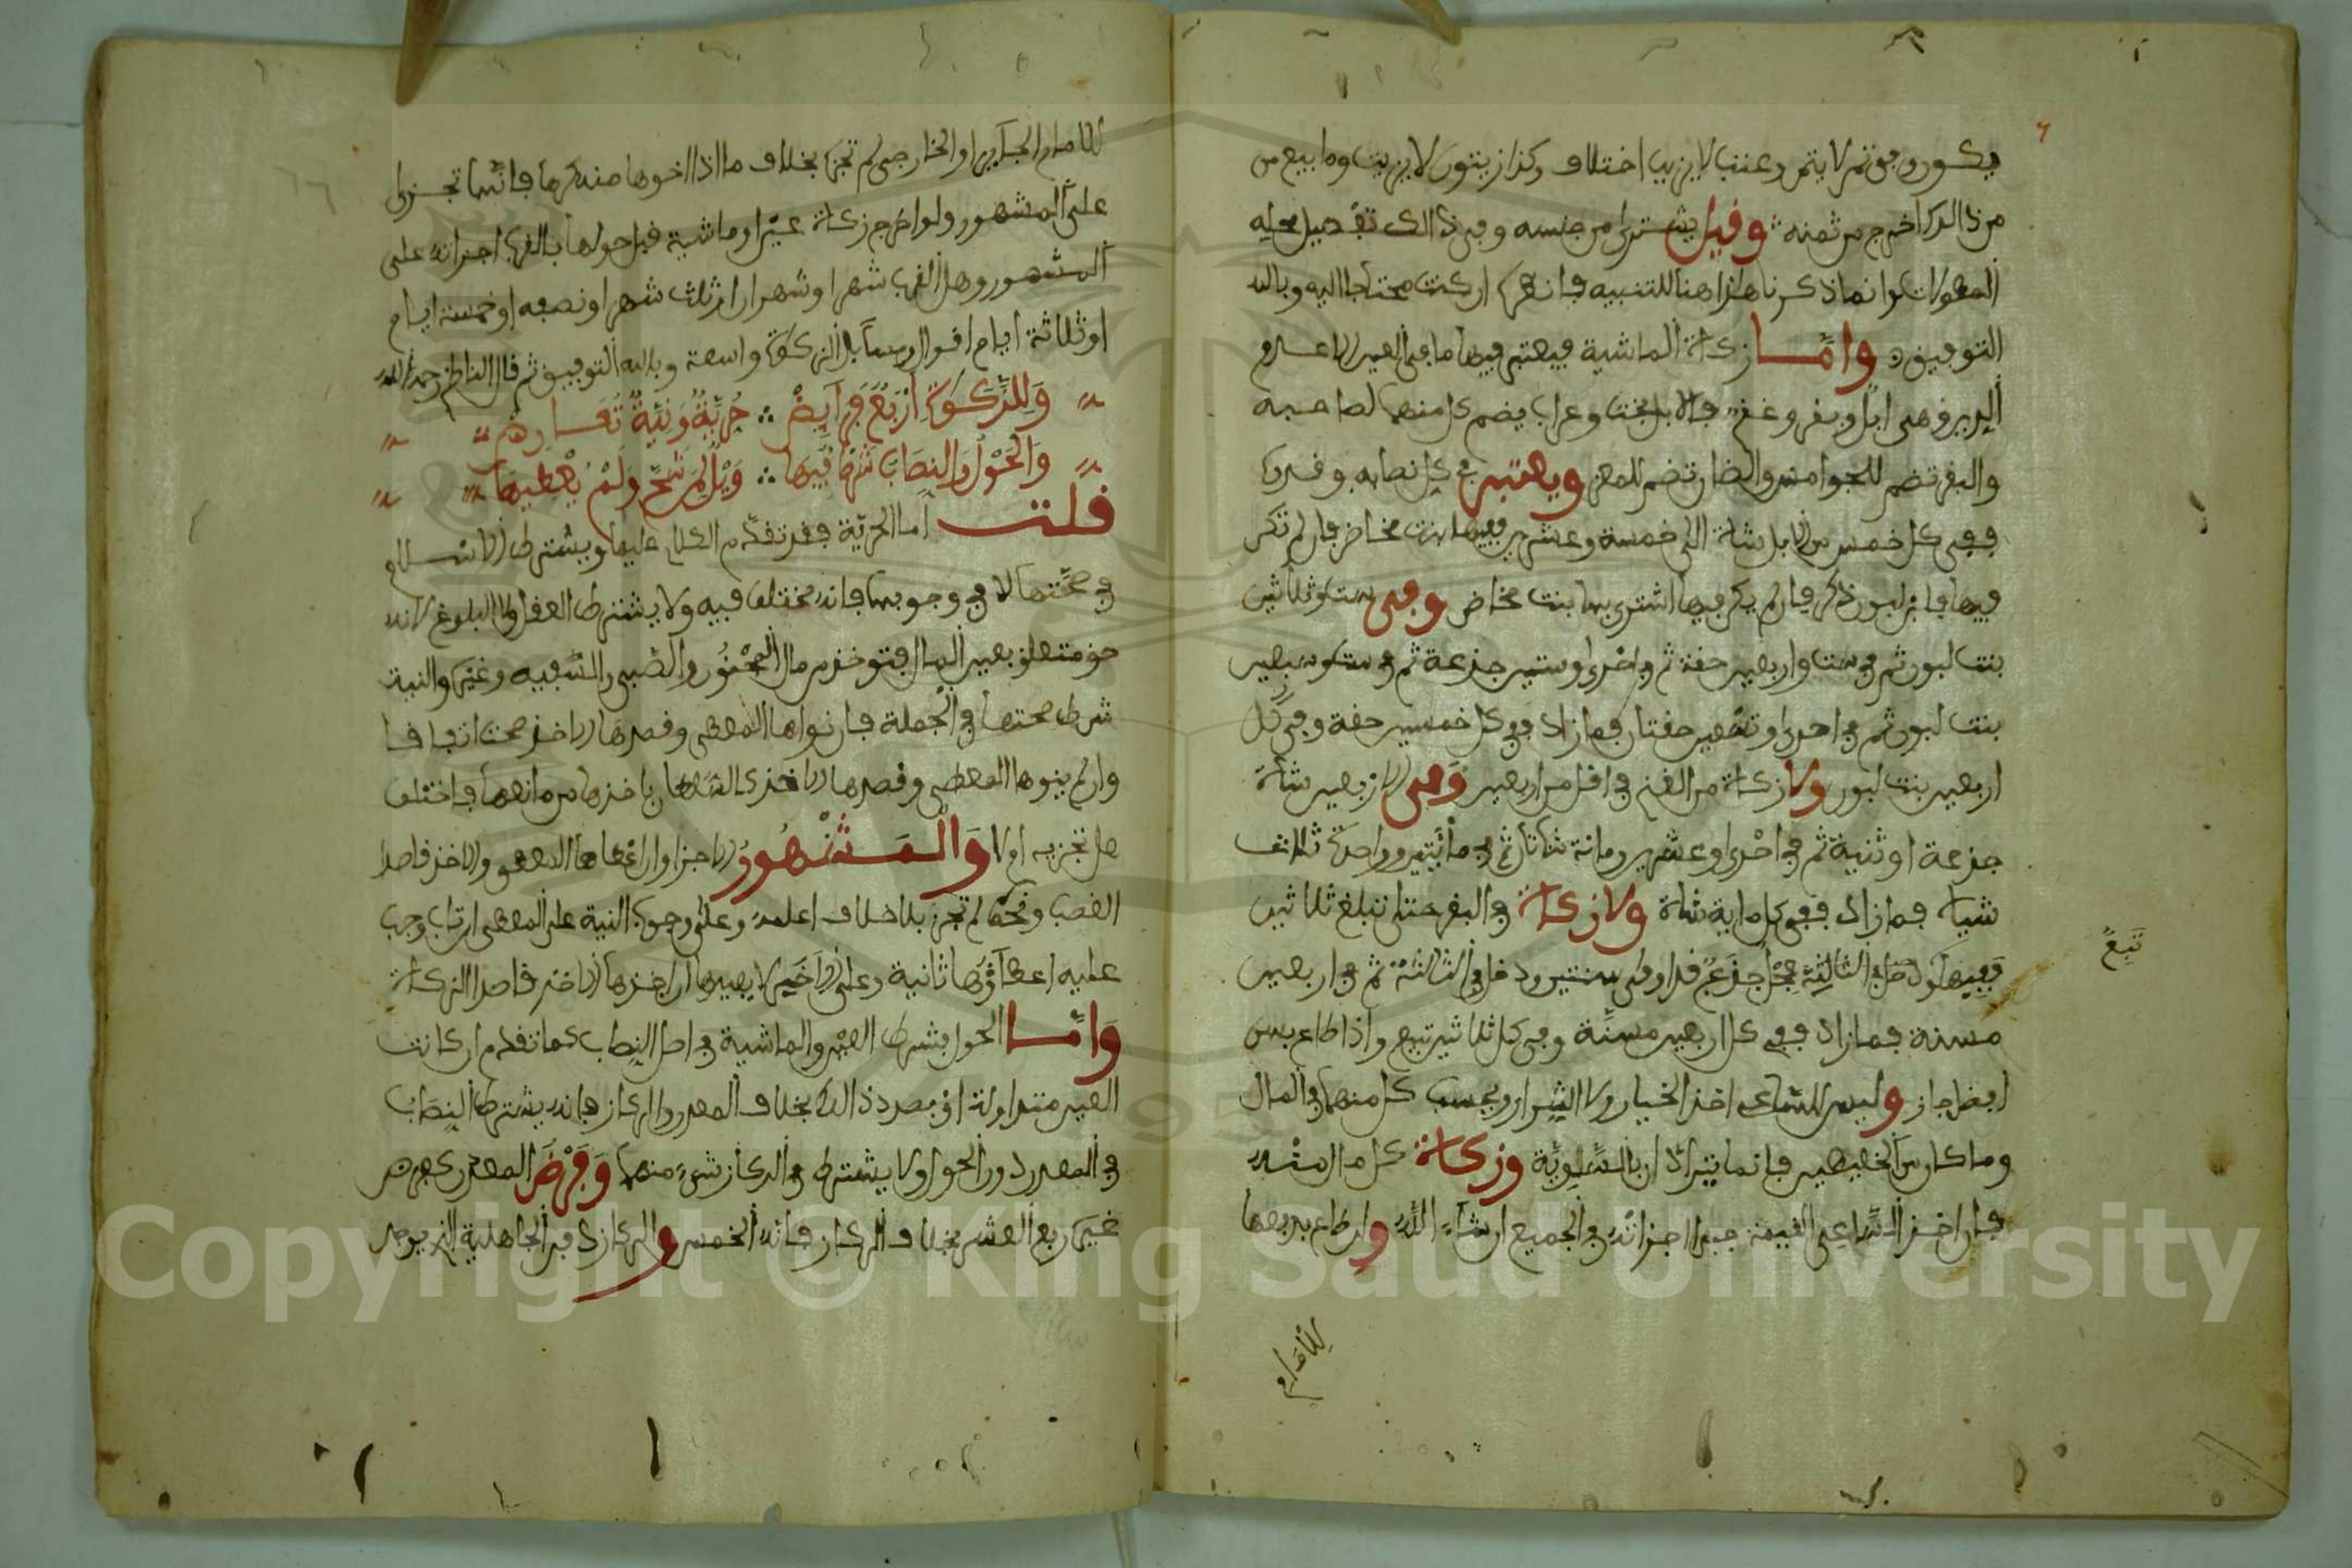 فيكون وفي تمر لا يتمر وعنب لا يزبب اختلاف وكذا زيتون لا زيت وما بيع من
من ذالك اخرج من ثمنه وقيل يشترى من جنسه وفي ذالك تفصيل محله
المطولات وانما ذكرنا هذا هنا للتنبيه فانظره ان كنت محتاجا اليه وبالله
التوفيق وامـا زكاة الماشية فيعتبر فيها ما في العين الا عدم
الدين وهي ابل وبقر وغنم فالابل بخت وعراب يضم كل منهما لصاحبه
والبقر تضم للجواميس والضان تضم للمعز ويعتبر في كل نصابه وقدره
ففي كل خمس من الابل شاة الى خمسة وعشرين ففيها بنت مخاض فان لم تكن
فيها فابن لبون ذكر فان لم يكن فيها اشترى بها بنت مخاض وفي ست وثلاثين
بنت لبون ثم في ست واربعين حقة ثم في احدى وستين جذعة ثم في ست وسبعين
بنت لبون ثم في احدى وتسعين حقتان فما زاد ففي كل خمسين حقة وفي كل
اربعين بنت لبون ولا زكاة من الغنم في اقل من اربعين وفي الاربعين شاة
جذعة او ثنية ثم في احدى وعشرين ومائة شاتان ثم في مائتين وواحدة ثلاث
شياه فما زاد ففي كل ماية شاة ولا زكاة في البقر حتى تبلغ ثلاثين
ففيها دخل في الثالثة عجل جذع قد اوفى سنتين ودخل في الثالثة ثم في اربعين
تبيع
مسنة فما زاد ففي كل اربعين مسنة وفي كل ثلاثين تبيع واذا طاع بسن
افضل جاز وليس للساعي اخذ الخيار ولا الشرار وبحسب كل منهما في المال
وما كان من الخليطين فانما يترادان بالسوية وزكاة كل مال منه
فان اخذ الساعي القيمة جبرا اجزاته في الجميع ان شاء الله وان طاع بدفعها
للامام
للامام الجاير او الخارجي لم تجزه بخلاف ما اذا اخذها منه كرها فانها تجزى
على المشهور ولو اخرج زكاة عين او ماشية قبل حولها بالقرب اجزاته على
المشهور وهل القرب شهر او شهران او ثلث شهر او نصفه او خمسة ايام
او ثلاثة ايام اقوال ومسايل الزكوة واسعة وبالله التوفيق ثم قال الناظم رحمه الله
وللزكوة اربع فرايض ∴ حرية ونية تعارض
والحول والنصاب شرط فيها ∴ ويل لمن شح ولم يعطيها
قلت اما الحرية فقد تقدم الكلام عليها ويشترط الاسلام
في صحتها لا في وجوبها فانه مختلف فيه ولا يشترط العقل ولا البلوغ لانه
حق متعلق بعين المال فتوخذ من مال المجنون والصبي والسفيه وغيره والنية
شرط صحتها في الجملة فان نواها المعطي وقصدها الاخذ صحت اتفاقا
وان لم ينوها المعطي وقصدها الاخذ كالسلطان ياخذها من مانعها فاختلف
هل تجزيه او لا والمشهور الاجزا وان اعطاها المعطي والاخذ قاصدا
الغصب ونحوه لم تجز بلا خلاف اعلمه وعلى وجوب النية على المعطي ان تاب وجب
عليه اعطاؤها ثانية وعلى الاخير لا يعيدها ان اخذها الاخذ قاصدا الزكاة
وامـا الحول فشرط العين والماشية في اصل النصاب كما تقدم ان كانت
العين متداولة او بصدد ذالك بخلاف المعدن والركاز فانه يشترط النصاب
في المعدن دون الحول ولا يشترط في الركاز شيء منهما وفرض المعدن كفرض
غيره ربع العشر بخلاف الركاز فانه الخمس والركاز دفن الجاهلية الذي يوجد
Copyright © King Saud University